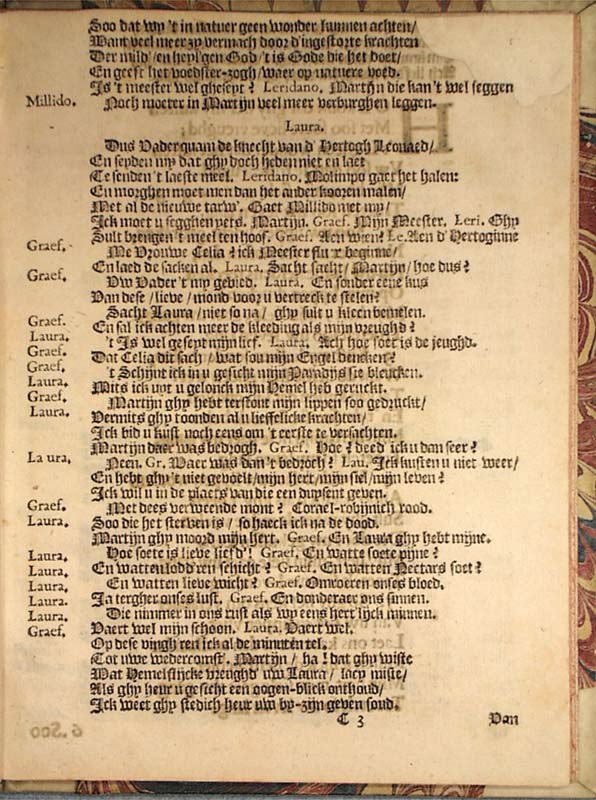 Soo dat wy 't in natuer geen wonder kunnen achten/
Want veel meer zy vermach door d'ingestorte krachten
Der mild' en heyl'gen God 't is Gode die het doet/
En geeft het voedster-zogh/ waer op natuere voed.
Is 't meester wel gheseyt? Leridano. Martijn die kan 't wel seggen
Millido. Noch moeter in Martijn veel meer verburghen leggen.
Laura.
Dus Vader quam de knecht van d' Hertogh Leonaed/
En seyden my dat ghy doch heden niet en laet
Te senden 't laeste meel. Leridano. Molimpo gaet het halen:
En morghen moet men dan het ander kooren malen/
Met al de nieuwe tarw'. Gaet Millido met my/
Ick moet u segghen yets. Martijn. Graef. Mijn Meester. Leri. Ghy
Sult brengen 't meel ten hoof. Graef. Aen wien? Le. Aen d' Hertoginne
Graef. Me Vrouwe Celia? ick Meester flux beginne/
En laed de sacken al. Laura. Sacht sacht/ Martijn/ hoe dus?
Graef. Uw Vader 't my gebied. Laura. En sonder eene kus
Van dese/ lieve/ mond voor u vertreck te stelen?
Sacht Laura/ niet so na/ ghy sult u kleen bemelen.
Graef. En sal ick achten meer de kleeding als mijn vreughd?
Laura. 't Is wel geseyt mijn lief. Laura. Ach hoe soet is de jeughd.
Graef. Dat Celia dit sach/ wat sou mijn Engel dencken?
Graef. 't Schijnt ick in u gesicht mijn Paradijs sie blencken.
Laura. Mits ick uyt u gelonck mijn Hemel heb geruckt.
Graef. Martijn ghy hebt terstont mijn lippen soo gedruckt/
Laura. Vermits ghy toonden al u lieffelicke krachten/
Ick bid u kust noch eens om 't eerste te versachten.
Martijn daer was bedrogh. Graef. Hoe? deed' ick u dan seer?
Laura. Neen. Gr. Waer was dan 't bedroch? Lau. Ick kusten u niet weer/
En hebt ghy 't niet gevoelt/ mijn hert/ mijn siel/ mijn leven?
Ick wil u in de plaets van die een duysent geven.
Graef. Met dees verweende mont? Corael-robijnich rood.
Laura. Soo die het sterven is/ so haeck ick na de dood.
Martijn ghy moord mijn hert. Graef. En Laura ghy hebt mijne.
Laura. Hoe soete is lieve liefd'! Graef. En watte soete pijne?
Laura. En watten lodd'ren schicht? Graef. En watten Nectars soet?
Laura. En watten lieve wicht? Graef. Omroeren onses bloed.
Laura. Ja tergher onses lust. Graef. En donderaer ons sinnen.
Laura. Die nimmer in ons rust als wy eens hert'lijck minnen.
Graef. Vaert wel mijn schoon. Laura. Vaert wel.
Op dese vingh'ren ick al de minuten tel.
Tot uwe wedercomst. Martijn/ ha! dat ghy wiste
Wat Hemelsijcke vreughd' uw Laura/ lacy miste/
Als ghy heur u gesicht een oogen-blick onthoud/
Ick weet ghy stedich heur uw by-zijn geven soud.
C 3 Van